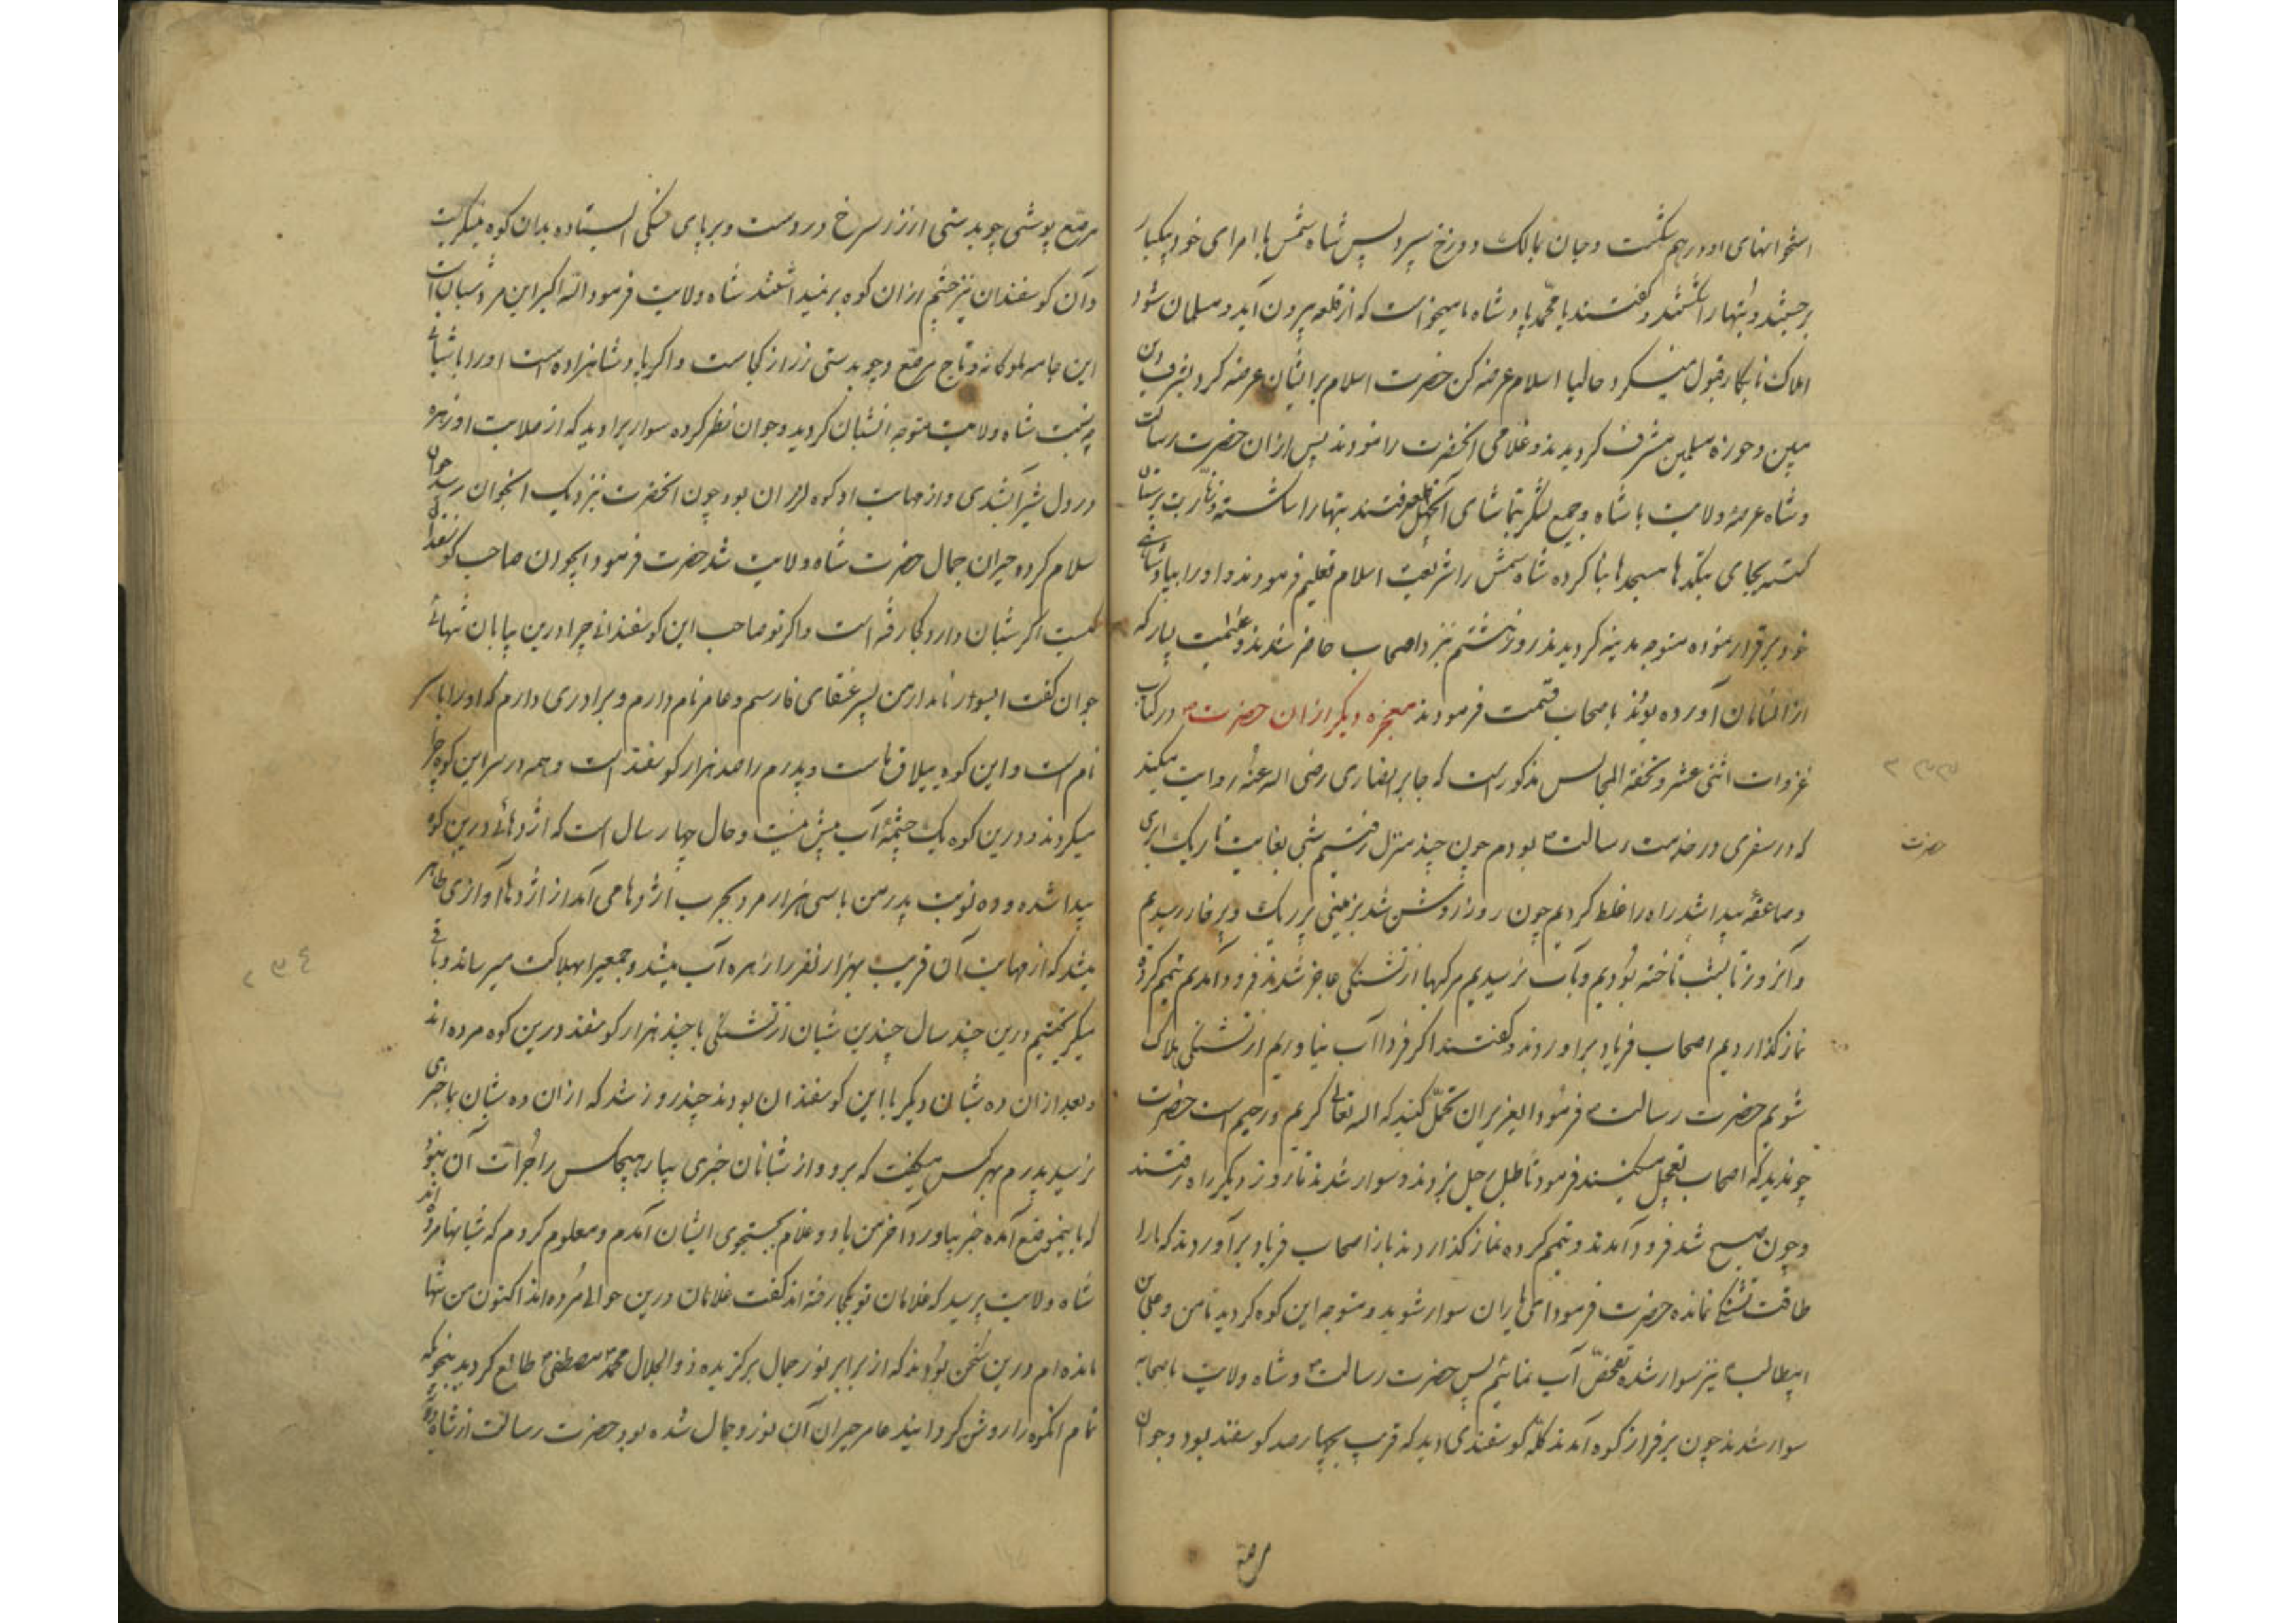 استخوانهای او درهم شکست و جان بمالک دوزخ سپرد پس شاه شمش با امرای خود بیکبار
برجستند و بتهارا شکستند و گفتند یا محمد پادشاه ما میخواست که از قلعه بیرون آید و مسلمان شود
املاک نابکار قبول نمیکرد حالیا اسلام عرضه کن حضرت اسلام برایشان عرضه کرد بشرف دین
مبین و حوزه مسلمین مشرف گردیدند و غلامی آنحضرت را نمودند پس ازان حضرت رسالت
و شاه عرصه ولایت با شاه و جمیع لشکر بتماشای آن قلعه رفتند بتهارا شکسته و زنار بت پرستان
گسسته بجای بتکدها مسجدها بنا کرده شاه شمش را شریعت اسلام تعلیم فرمودند و اورا بپادشاهی
خود برقرار نموده متوجه مدینه گردیدند روز هشتم نیز اصحاب حاضر شدند و غنیمت بسیار که
ازانشانان آورده بودند باصحاب قسمت فرمودند معجزه دیگر ازان حضرت در کتاب
غزوات اثنی عشر و تحفة المجالس مذکور است که جابر انصاری رضی الله عنه روایت میکند
که در سفری در خدمت رسالت بودم چون چند منزل رفتیم شبی بغایت تاریک ابری
و صاعقه پیدا شد راه را غلط کردیم چون روز روشن شد بزمینی پر ریک و پر خار رسیدیم
و آنروز تا بشب تاخته بودیم و بآب نرسیدیم مرکبها از تشنگی عاجز شدند فرود آمدیم تیمم کرده
نماز گذاردیم اصحاب فریاد برآوردند و گفتند اگر فردا آب نیاوریم از تشنگی هلاک
شویم حضرت رسالت فرمود ایعزیزان تحمل کنید که الله تعالی کریم و رحیم است حضرت
چو ندید که اصحاب تعجیل میکنند فرمود تا طبل رحیل بزدند و سوار شدند تا روز دیگر راه رفتند
و چون صبح شد فرود آمدند و تیمم کرده نماز گذاردند باز اصحاب فریاد برآوردند که مارا
طاقت تشنگی نمانده حضرت فرمود ای یاران سوار شوید و متوجه این کوه گردید تا من و علی بن
ابیطالب نیز سوار شده تفحص آب نمائیم پس حضرت رسالت و شاه ولایت با صحابه
سوار شدند چون بر فراز کوه آمدند گله گوسفندی دید که قریب بچهارصد گوسفند بود و جوان
حضرت
مرصع
مرصع پوشی چوبدستی از زر سرخ در دست و بر پای سنگی ایستاده بدان کوه مینگریست
و آن گوسفندان نیز چشم ازان کوه برنمیداشتند شاه ولایت فرمود الله اکبر این مرد شبان است
این جامه ملوکانه و تاج مرصع و چوبدستی زر از کجاست و اگر پادشاهزاده است اورا با شبانی
چه نسبت شاه ولایت متوجه انشبان گردید و جوان نظر کرده سوار برا دید که از صلابت او زهره
در دل شیر آب شدی و از مهابت او کوه لرزان بود چون آنحضرت نزدیک انجوان رسید جوان
سلام کرد و حیران جمال حضرت شاه ولایت شد حضرت فرمود ایجوان صاحب گوسفندان
کیست اگر شبان دارد کجا رفته است و اگر تو صاحب این گوسفندانی چرا درین بیابان تنهائی
جوان گفت ایسوار نامدار من پسر عنقای فارسم و عامر نام دارم و برادری دارم که اورا
نام است و این کوه ییلاق ماست و پدرم را صد هزار گوسفند است و همه در سر این کوه چرا
میکردند و درین کوه یک چشمه آب بیش نیست و حال چهار سال است که اژدهائی درین کوه
پیدا شده و ده نوبت پدر من با سی هزار مرد بحرب اژدها می آمد از اژدها آوازی ظاهر
میشد که از مهابت آن قریب بهزار نفر را زهره آب میشد و جمعیرا بهلاکت میرساند و باقی
میگریختیم درین چند سال چندین شبان از تشنگی با چند هزار گوسفند درین کوه مرده اند
و بعد ازان ده شبان دیگر با این گوسفندان بودند چند روز شد که ازان ده شبان بما خبری
نرسید پدرم بهر کس میگفت که برو و از شبانان خبری بیار هیچکس را جرأت آن نبود
که باینموضع آمده خبر بیاورد آخر من با دو غلام بجستجوی ایشان آمدم و معلوم کردم که شبانها مرده اند
شاه ولایت پرسید که غلامان تو بکجا رفته اند گفت غلامان درین حوالی مرده اند اکنون من تنها
مانده ام درین سخن بودند که از برابر نور جمال برگزیده ذوالجلال محمد مصطفی طالع گردید بنحویکه
تمام انکوه را روشن گردانید عامر حیران آن نور و جمال شده بود حضرت رسالت از شاه